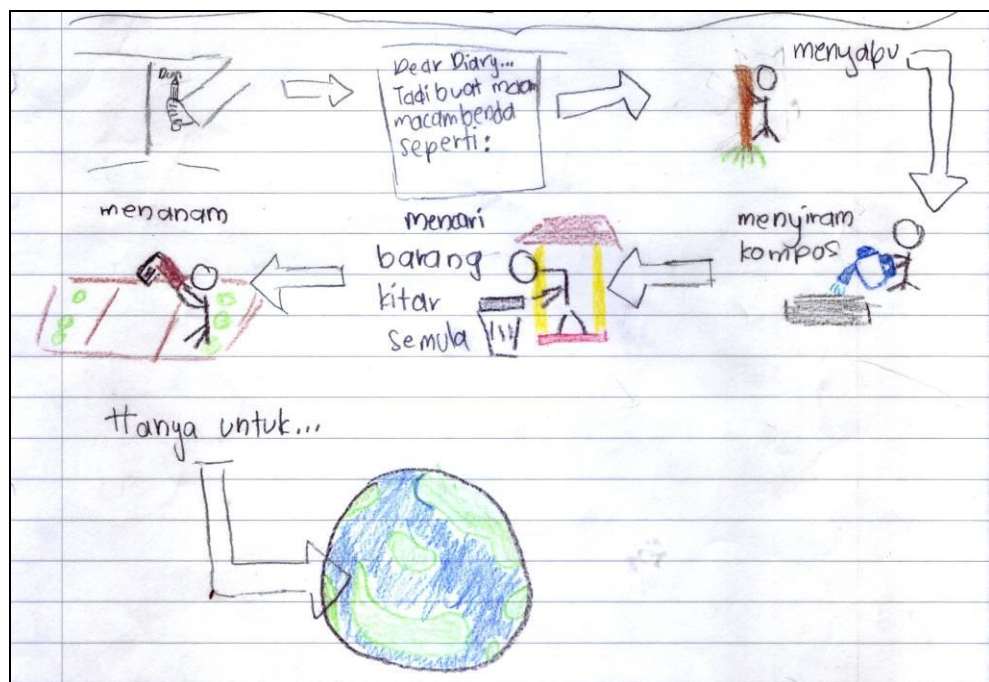 Dear Diary...
Tadi buat macam
macam benda
seperti:
menyapu
menyiram
kompos
mencari
barang
kitar
semula
menanam
Hanya untuk...